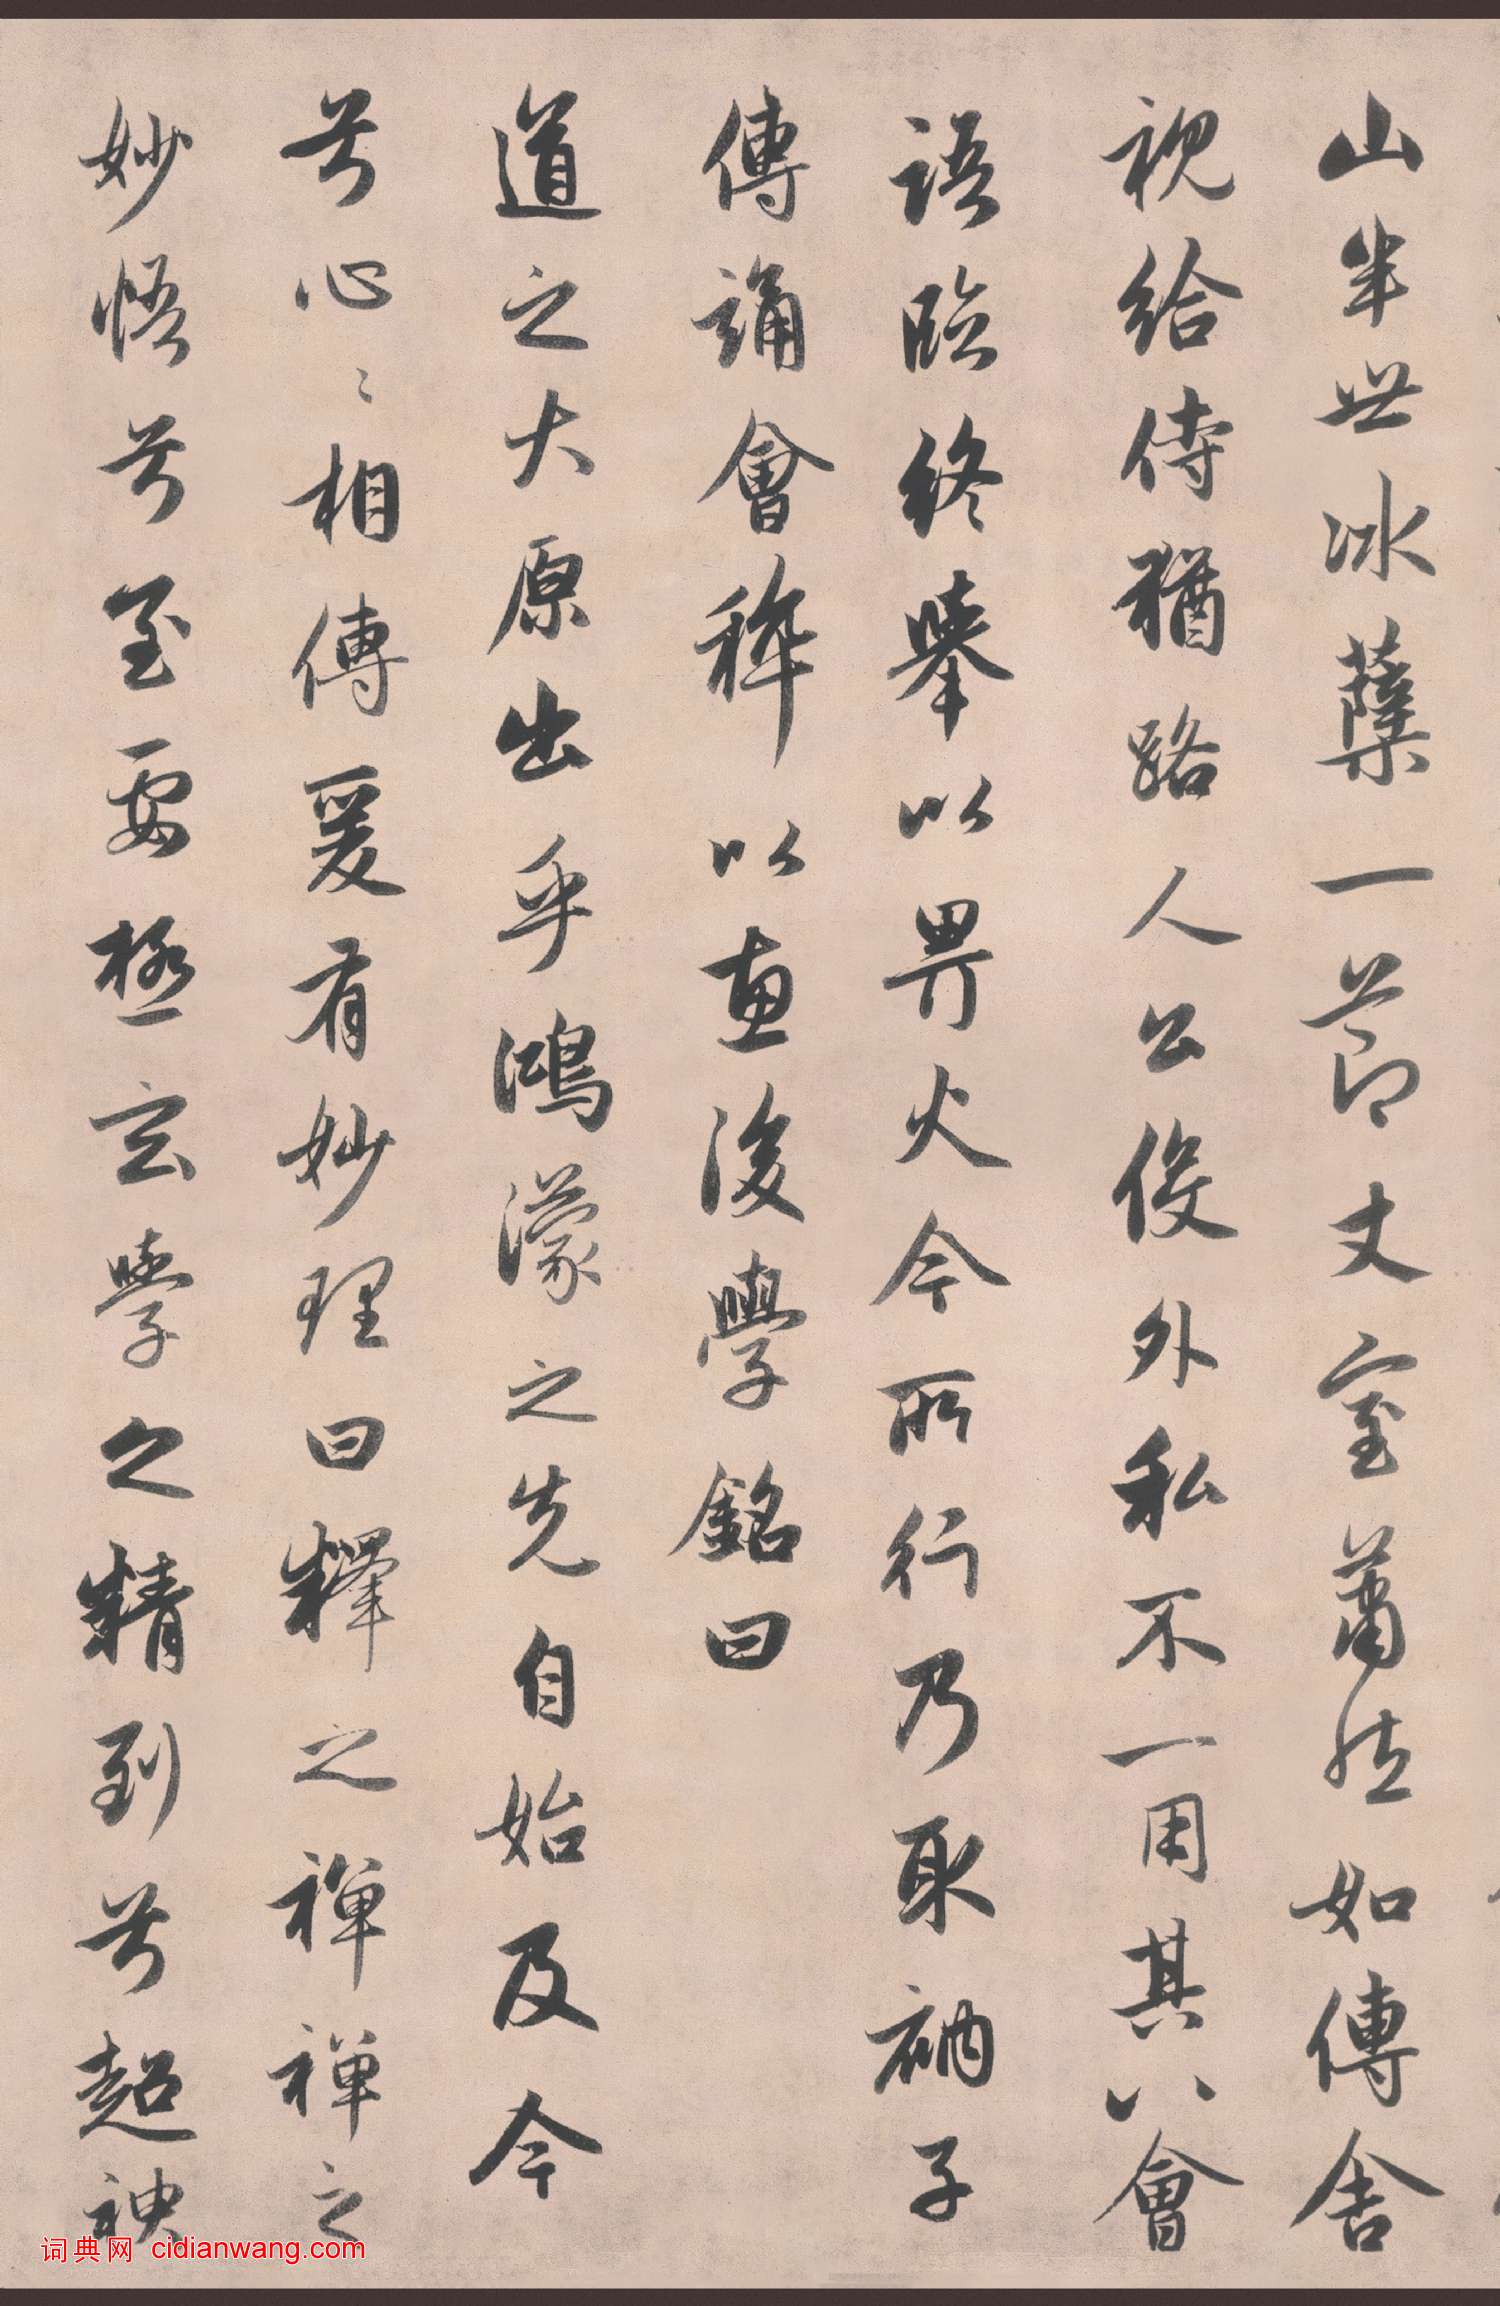 山半世冰蘖一節丈室蕭然如傳舍
視給侍猶路人公俊外私不一用其八會
語臨終舉以畀火今所行乃取衲子
傳誦會稡以惠後學銘曰
道之大原出乎鴻濛之先自始及今
兮心〻相傳爰有妙理曰釋之禪禪之
妙悟兮至要極玄學之精到兮超
词典网 cidianwang.com